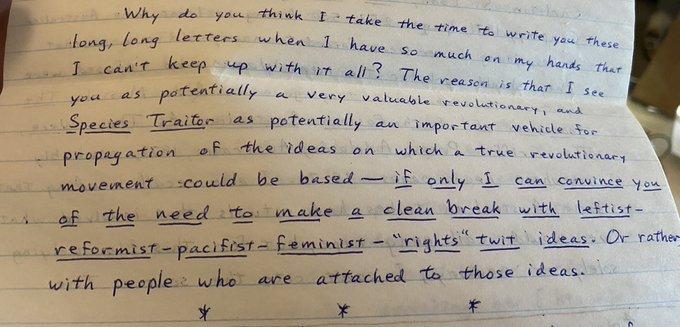 Why do you think I take the time to write you these
long, long letters when I have so much on my hands that
I can't keep up with it all? The reason is that I see
you as potentially a very valuable revolutionary, and
Species Traitor as potentially an important vehicle for
propagation of the ideas on which a true revolutionary
movement could be based — if only I can convince you
of the need to make a clean break with leftist-
reformist-pacifist-feminist-"rights" twit ideas. Or rather
with people who are attached to those ideas.
* * *